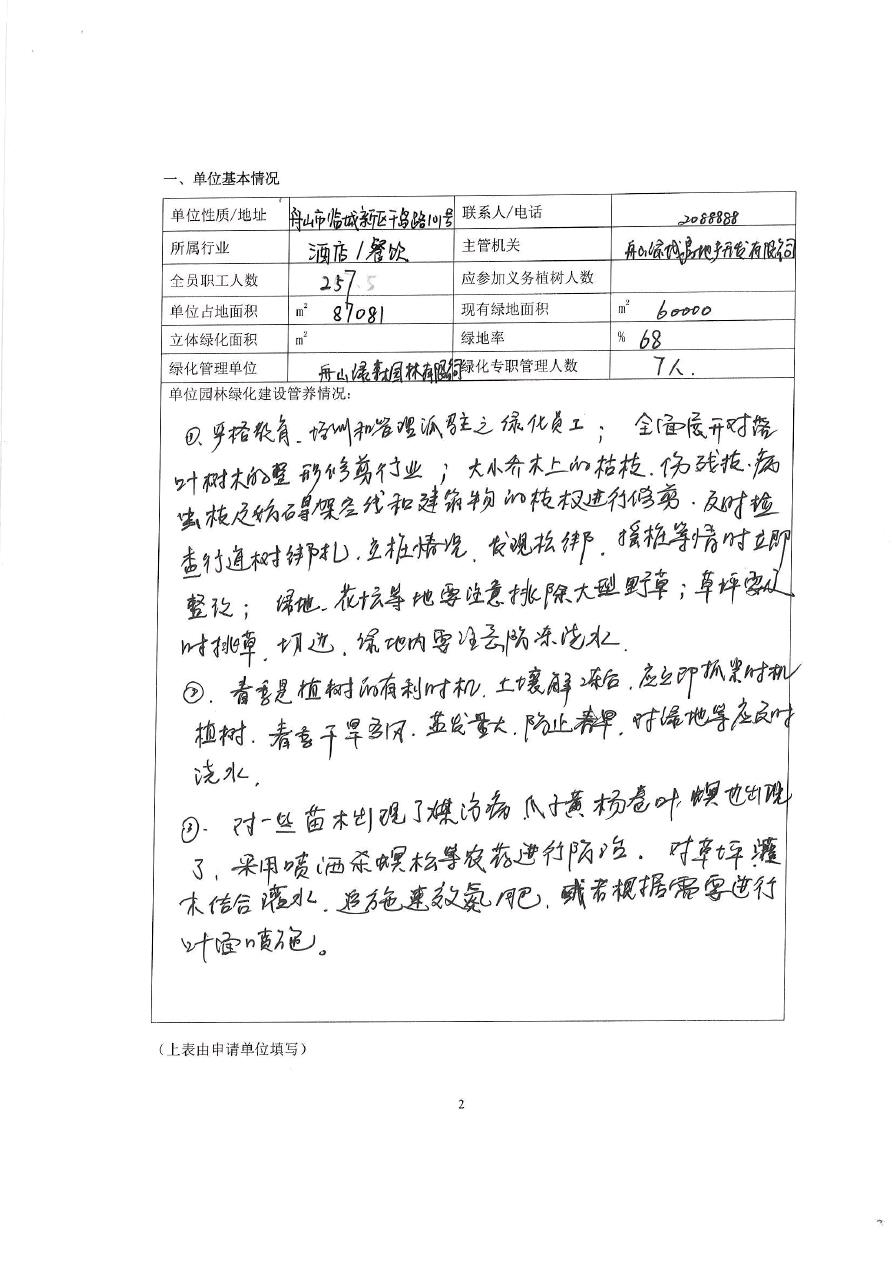 一、单位基本情况
单位性质/地址 舟山市临城新区千岛路101号 联系人/电话 2088888
所属行业 酒店/餐饮 主管机关 舟山绿城房地产开发有限公司
全员职工人数 257 应参加义务植树人数
单位占地面积 m² 87081 现有绿地面积 m² 60000
立体绿化面积 m² 绿地率 % 68
绿化管理单位 舟山绿 园林有限公司 绿化专职管理人数 7人.
单位园林绿化建设管养情况:
①. 严格教育、培训和管理派驻之绿化员工; 全面展开对落
叶树木的整形修剪行业; 大小乔木上的枯枝、伤残枝、病
虫枝及妨碍架空线和建筑物的枝杈进行修剪. 及时检
查行道树绑扎、立桩情况, 发现松绑, 摇桩等情时立即
整改; 绿地、花坛等地要注意挑除大型野草; 草坪要及
时挑草, 切边, 绿地内要注意防冻浇水.
②. 春季是植树的有利时机, 土壤解冻后, 应立即抓紧时机
植树. 春季干旱多风. 蒸发量大, 防止春旱, 对绿地等应及时
浇水.
③. 对一些苗木出现了煤污病 瓜子黄杨卷叶螟也出现
了, 采用喷洒杀螟松等农药进行防治. 对草坪灌
木结合灌水, 追施速效氮肥, 或者根据需要进行
叶面喷施。
(上表由申请单位填写)
2